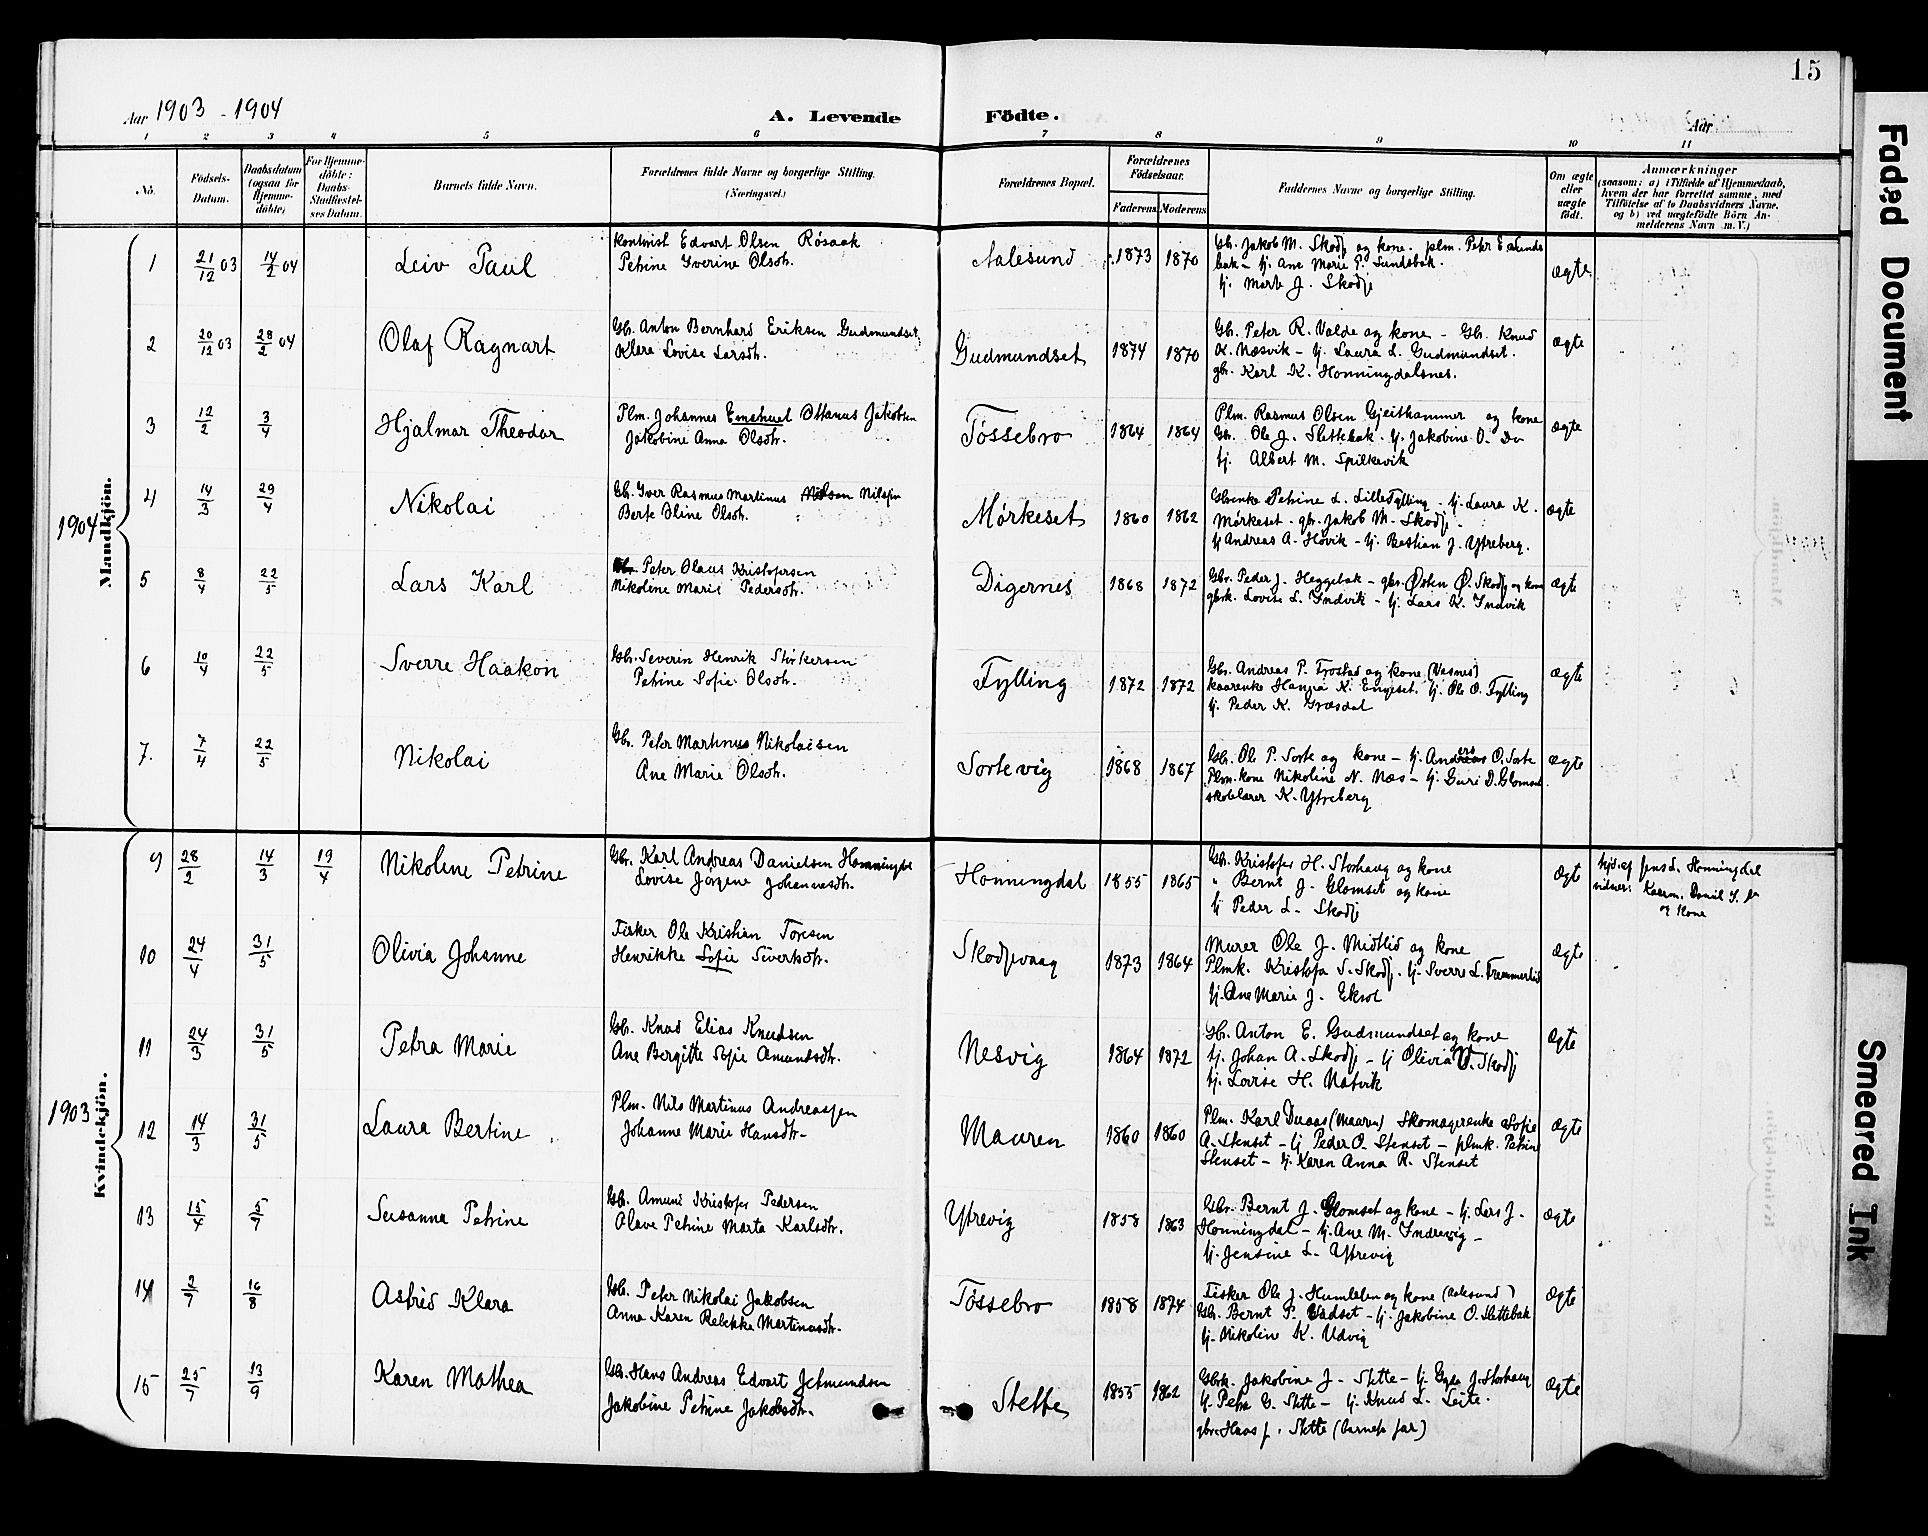 15
Aar 1903 - 1904
A. Levende Födte.
Aar
1 2 3 4 5 6 7 8 9 10 11
No.
Födsels-Datum.
Daabsdatum (ogsaa for Hjemme-döbte)
For Hjemme-döbte: Daabs-Stadfæstel-ses Datum.
Barnets fulde Navn.
Forældrenes fulde Navne og borgerlige Stilling. (Næringsvei.)
Forældrenes Bopæl.
Forældrenes Födselsaar.
Faderens Moderens
Faddernes Navne og borgerlige Stilling.
Om ægte eller uægte födt.
Anmærkninger
(saasom: a) i Tilfælde af Hjemmedaab,
hvem der har forrettet samme, med
Tilföielse af to Daabsvidners Navne,
og b) ved uægtefödte Börn An-
melderens Navn m. V.)
1904 Mandkjön.
1 21/12 03 14/2 04 Leiv Paul
Kontorist Edvart Olsen Rösaak
Petrine Iverine Olsdtr.
Aalesund 1873 1870
Gb. Jakob M. Skodj og kone. plm. Petr E Sunds
bak - Uj. Ane Marie P. Sundsbak.
Uj. Marte J. Skodje
ægte
2 20/12 03 28/2 04 Olaf Ragnart
Gb. Anton Bernhard Eriksen Gudmundset
Klara Lovise Larsdtr.
Gudmundset 1874 1870
Gb. Peter R. Valde og kone - Gb. Knud
K. Næsvik - Uj. Laura L. Gudmundset.
gb. Karl K. Honningdalsnes.
ægte
3 12/2 3/4 Hjalmar Theodor
Plm. Johannes Emanuel Ottanus Jakobsen
Jakobine Anna Olsdtr.
Tössebro 1864 1864
Plm. Rasmus Olsen Gjeithammer og kone
Gb. Ole J. Slettebak. Uj. Jakobine O. Do
Uj. Albert M. Spilkevik
ægte
4 14/3 29/4 Nikolai
Gb. Iver Rasmus Martinus Nilsen
Berte Oline Olsdtr.
Mörkeset 1860 1862
Gbenke Petrine L. Lille Fylling - Uj. Laura K.
Mörkeset - gb. Jakob M. Skodj -
Uj Andreas A. Hovik - Uj. Bastian J. Ytreberg.
ægte
5 8/4 22/5 Lars Karl
Peter Olaus Kristofersen
Nikoline Marie Pedersdtr.
Digernes 1868 1872
Gb. Peder J. Heggebak - gb. Östen O. Skodj og kone
gbrk. Lovise L. Indvik - Uj. Lars K. Indvik
ægte
6 10/4 22/5 Sverre Haakon
Gb. Severin Henrik Styrkersen
Petrine Sofie Olsdtr.
Fylling 1872 1872
Gb. Andreas P. Frostad og kone (Vasnes)
kaarenke Hanna K. Engeset. Uj. Ole O. Fylling
Uj. Peder K. Græsdal
ægte
7. 7/4 22/5 Nikolai
Gb. Peter Martinus Nikolaisen
Ane Marie Olsdtr.
Sortevig 1868 1867
Gb. Ole P. Sorte og kone - Uj. Anders O. Sorte
Plm. kone Nikoline N. Næs - Uj. Guri D. Glomset
skolelærer K. Ytreberg
ægte
1903 Kvindekjön.
9 28/2 14/3 19/4 Nikoline Petrine
Gb. Karl Andreas Danielsen Honningdal
Lovise Jörgine Johannesdtr.
Honningdal 1855 1865
Gb. Kristofer H. Storhaug og kone
" Bernt J. Glomset og kone
Uj Peder L. Skodj
ægte
hjd. af Jens L. Honningdal
vidner: Kaarm. Daniel
og kone
10 24/4 31/5 Olivia Johanne
Fisker Ole Kristian Toresen
Henrikke Sofie Sivertsdtr.
Skodjevaag 1873 1864
Murer Ole J. Midtlid og kone
Plmk. Kristofa S. Skodj. Uj. Sverre L. Fremmerlid
Uj. Ane Marie J. Eksol
ægte
11 24/3 31/5 Petra Marie
Gb. Knud Elias Knudsen
Ane Bergitte Sofie Amundsdtr.
Nesvig 1864 1872
Gb. Anton E. Gudmundset og kone
Uj. Johan A. Skodj - Uj Olivia O. Skodj
Uj. Lovise H. Nesvik
ægte
12 14/3 31/5 Laura Bertine
Plm. Nils Martinus Andreassen
Johanne Marie Hansdtr.
Mauren 1860 1860
Plm. Karl Duaas (Mauren) Skomagerenke Sofie
A. Stenset - Uj Peder O. Stenset - plmk. Petrine
Stenset - Uj. Karen Anna R. Stenset
ægte
13 15/4 5/7 Susanna Petrine
Gb. Amund Kristofer Pedersen
Olave Petrine Marta Karlsdtr.
Ytrevig 1858 1863
Gb. Bernt J. Glomset og kone - Uj. Lars J.
Honningdal - Uj. Ane M. Indrevig -
Uj. Jensine L. Ytrevig
ægte
14 2/7 16/8 Astrid Klara
Gb. Peter Nikolai Jakobsen
Anna Karen Rebekka Martinusdtr.
Tössebro 1858 1874
Fisker Ole J. Humlelen og kone (Aalesund)
Gb. Bernt P. Vadset - Uj. Jakobine O. Slettebak
Uj. Nikoline K. Udvig
ægte
15 25/7 13/9 Karen Mathea
Gb. Hans Andreas Edvart Jetmundsen
Jakobine Petrine Jakobsdtr.
Stette 1855 1862
Gbrk. Jakobine J. Stette - Uj. Gyda J. Storhaug
Uj. Petra G. Stette - Uj. Knud L. Leite.
gbr. Hans J. Stette (barnets far)
ægte
Faded Document
Smeared Ink